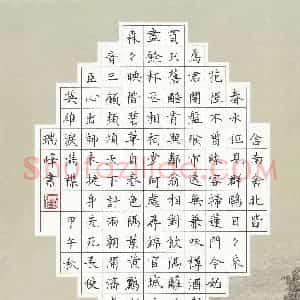 舍南舍北皆
春水但見群鷗日日來
花徑不曾緣客掃蓬門今始
為君開盤飧市遠無兼味樽酒
貧只舊醅肯與鄰翁相對飲隔籬
盡餘杯丞相祠堂何處尋錦官城
森々映階碧草自春色隔葉黃鸝
音三顧頻煩天下計兩朝開濟
臣心出師未捷身先死長使
英雄淚滿襟 甲午秋
瑞峰書